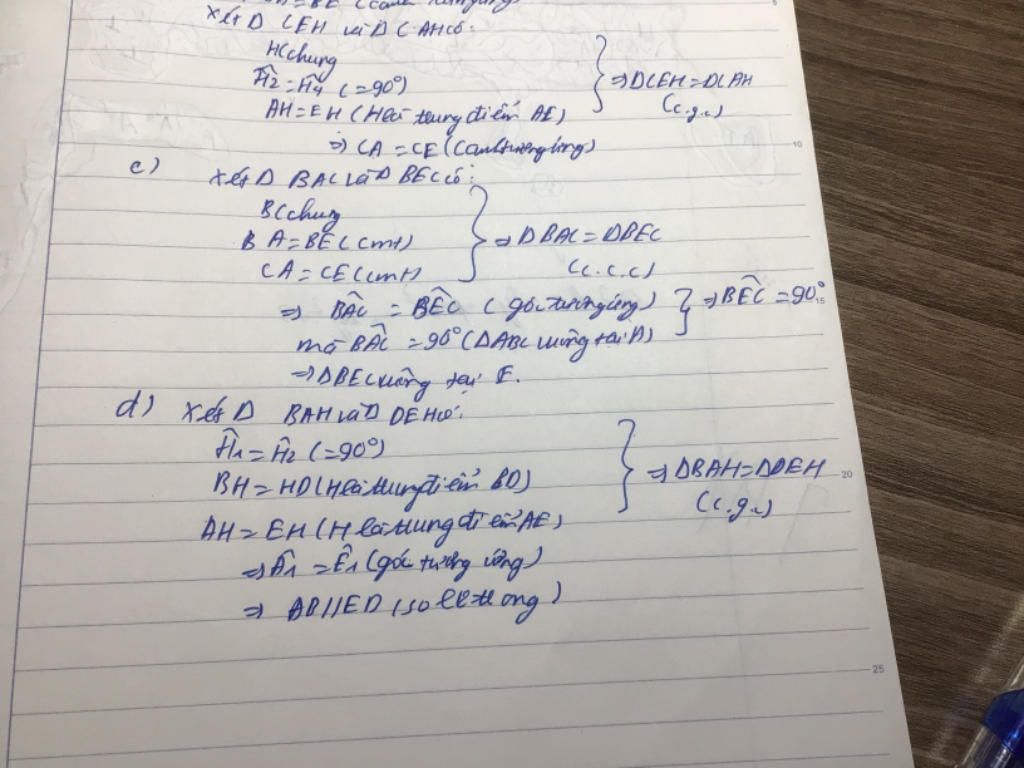 = BE (cạnh tương ứng)
Xét Δ CEH và Δ CAH có:
HC chung
Ĥ2 = Ĥ4 (=90°)
AH = EH (H là trung điểm AE)
⇒ ΔCEH = ΔCAH
(c.g.c)
⇒ CA = CE (cạnh tương ứng)
c) Xét Δ BAC và Δ BEC có:
BC chung
BA = BE (cmt)
CA = CE (cmt)
⇒ ΔBAC = ΔBEC
(c.c.c)
⇒ BÂC = BÊC (góc tương ứng)
mà BÂC = 90° (ΔABC vuông tại A)
⇒ BÊC = 90°
⇒ ΔBEC vuông tại E.
d) Xét Δ BAH và Δ DEH có:
Ĥ1 = Ĥ2 (=90°)
BH = HD (H là trung điểm BD)
AH = EH (H là trung điểm AE)
⇒ ΔBAH = ΔDEH
(c.g.c)
⇒ Â1 = Ê1 (góc tương ứng)
⇒ AB // ED (so le trong)
5
10
15
20
25